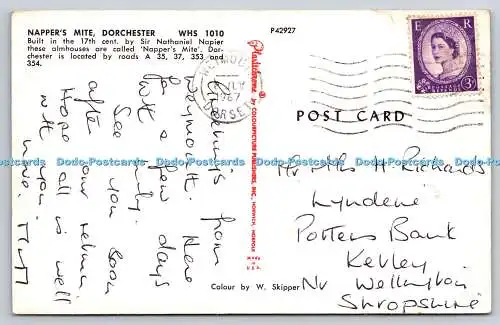 NAPPER'S MITE, DORCHESTER WHS 1010
Built in the 17th cent. by Sir Nathaniel Napier
these almhouses are called 'Napper's Mite'. Dor-
chester is located by roads A 35, 37, 353 and
354.
P42927
Greetings from
Weymouth. Here
for a few days
with
See you soon
after our return
Hope all is well
with you
Plastichrome ® BY COLOURPICTURE PUBLISHERS, INC., NORWICH, NORFOLK
MADE IN U.S.A.
Colour by W. Skipper
WEYMOUTH
1967
DORSET
E R
POSTAGE REVENUE
3D
POST CARD
Mr Mrs H. Richards
Lyndene
Potters Bank
Ketley
Nr Wellington
Shropshire
Dodo-Postcards Dodo-Postcards Dodo-Postcards Dodo-Postcards Dodo-Postcards Dodo-Postcards